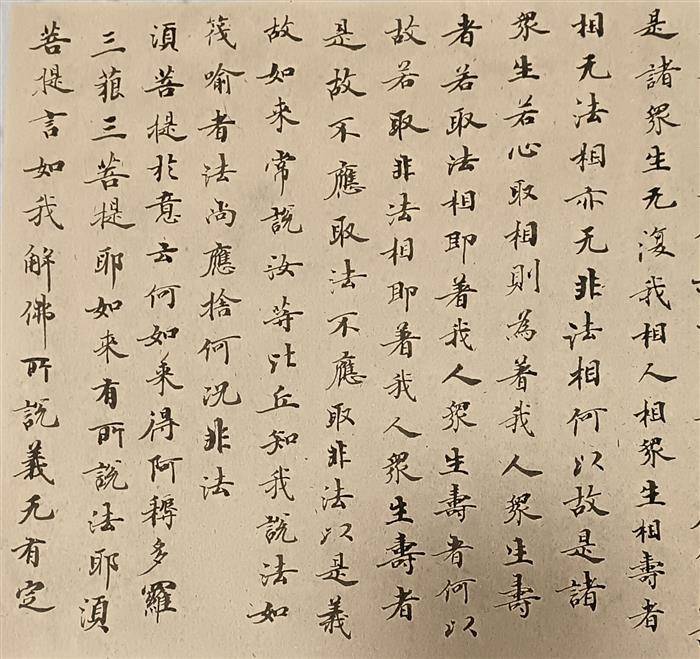 是諸眾生无復我相人相眾生相壽者
相无法相亦无非法相何以故是諸
眾生若心取相則為著我人眾生壽
者若取法相即著我人眾生壽者何以
故若取非法相即著我人眾生壽者
是故不應取法不應取非法以是義
故如来常說汝等比丘知我說法如
筏喻者法尚應捨何况非法
須菩提於意云何如来得阿耨多羅
三藐三菩提耶如来有所說法耶須
菩提言如我解佛所說義无有定